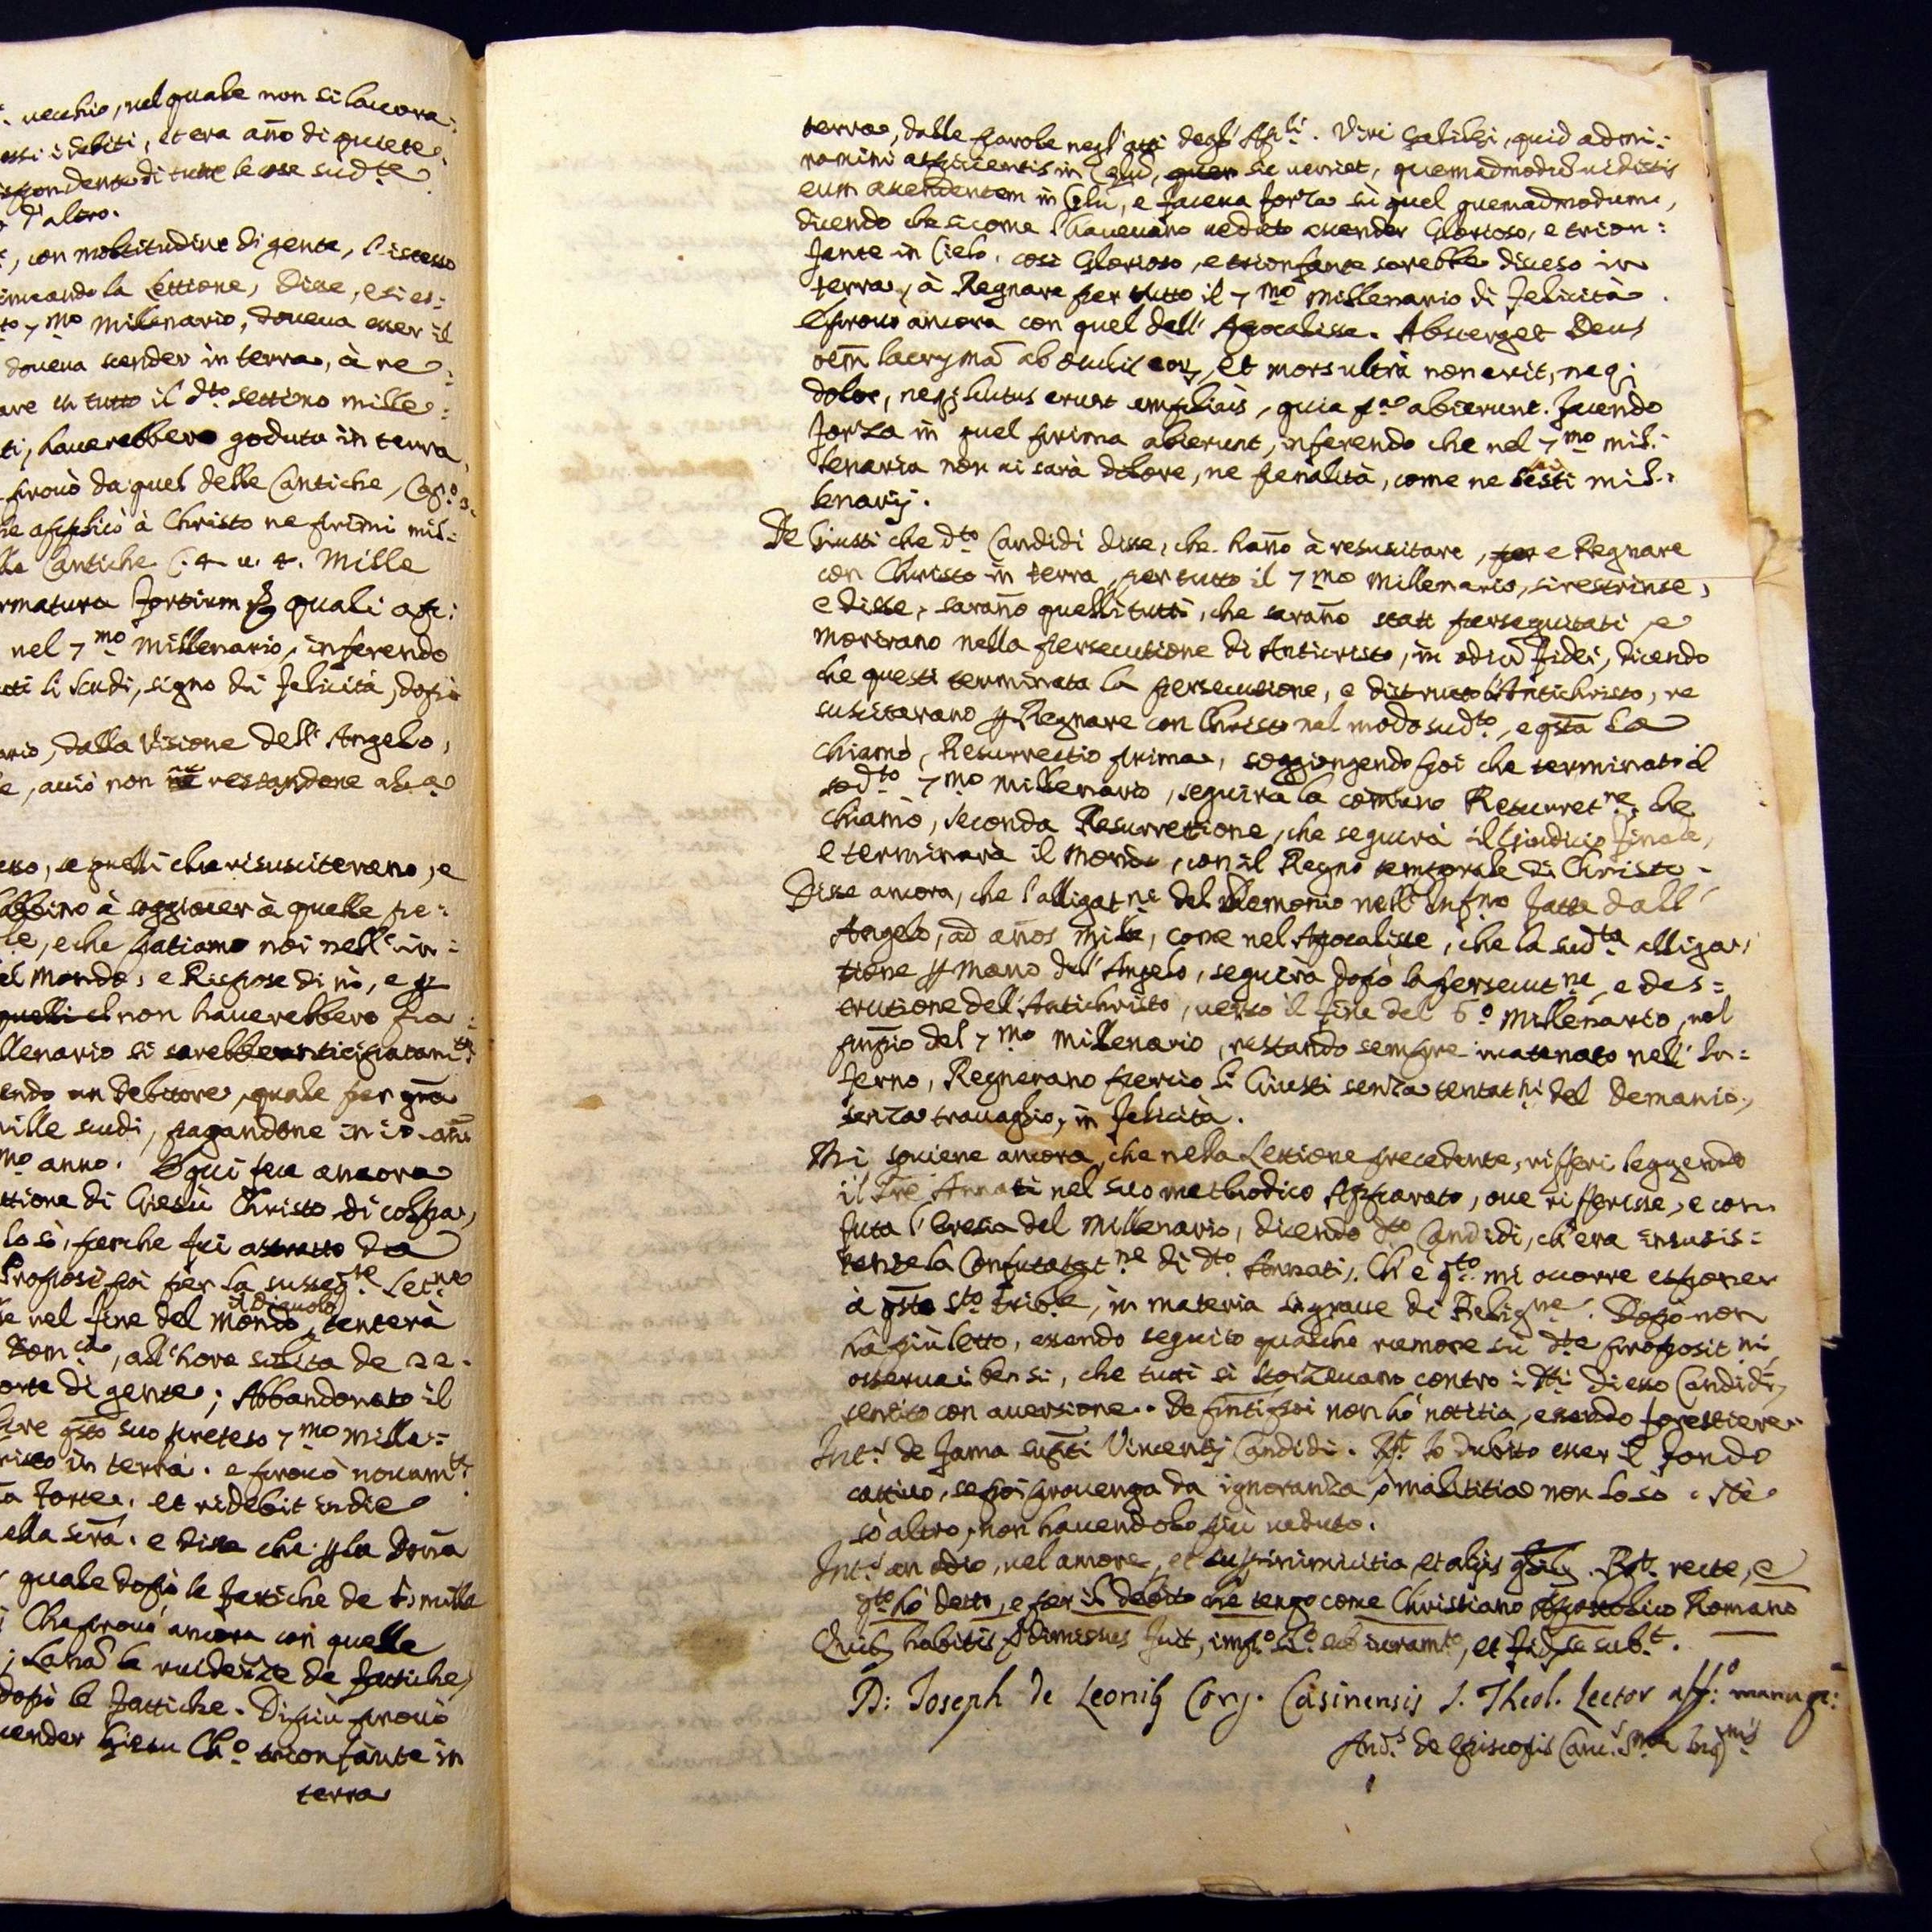 : vecchio, nel quale non si lavora:
essi i debiti, et era año di quiete,
ispondente di tutte le cose sud.te
d'altro.
, con moltitudine di gente, l'istesso
inceando la Lettione, Disse, e si es:
to 7.mo Millenario, doueua esser il
doueua scender in terra, à re:
are in tutto il d.to settimo mille:
ti, hauerebbero goduto in terra,
prouò da quel delle Cantiche, Cap.o
he applicò à Christo ne primi mil:
lle Cantiche C. 4. u. 4. Mille
rmatura fortium, quali ap:
nel 7.mo Millenario, inferendo
ti li Scudi, signo di felicità, dopò
ario, dalla Visione dell'Angelo,
e, acciò non ne restandone alc.a
esso, se quelli che risusciterano, e
abbino à soggiacer à quelle pe:
le, e che patiamo noi nell'in:
el Mondo, e Rispose di nò, e p
quelli el non hauerebbero pa:
llenario si sarebbe anticipatam.te
endo un Debitore, quale per gña
mille scudi, pagandone in 10 añi
mo anno. E qui fece ancora
ttione di Giesù Christo di colpa,
lo sò, perche fui astratto da
Proposi poi per la susseg.te Let.ne
e nel fine del Mondo, il Diauolo tenterà
Dom.ca, all'hora solita de 22.
orte di gente; Abbandonato il
lire q̃sto suo preteso 7.mo mille:
risto in terra. e prouò nouam.te
a forte, et ridebit in die
ella serã. e disse che p la Doña
quale dopò le fatiche de 6 mille
Che prouò ancora con quelle
; Lahã le euidenze de fatiche,
dopò le fattiche. Di più prouò
scender Giesu Ch.o trionfante in
terra
terra, dalle parole negl'atti degl'Ap.li. Viri Galilei, quid admi:
ramini aspicientes in Celũ, quem sic veniet, quemadmodũ uidistis
eum ascendentem in Celũ, e faceua forza sù quel quemadmodum,
dicendo che sicome l'haueuano ueduto ascender Glorioso, e trion:
fante in Cielo, così Glorioso, e trionfante sarebbe disceso in
terra, à Regnare per tutto il 7.mo Millenario di felicità.
E prouò ancora con quel dell'Apocalisse. Absterget Deus
oẽm lacrymã ab oculis eorz, et mors ultrà non erit, neq;
dolor, neq; luctus erunt ampliùs, quia p.a abierunt. facendo
forza in quel prima abierunt, inferendo che nel 7.mo mil:
lenario non ui sarà dolore, ne penalità, come ne sesti mil:
lenarij.
De Giusti che d.to Candidi disse, che hañno à resuscitare, per e Regnare
con Christo in terra, per tutto il 7.mo Millenario, si restrinse,
e disse, sarañno quelli tutti, che sarañno stati perseguitati, e
morirano nella persecutione di Anticristo, in odiũ fidei, dicendo
che questi terminata la persecutione, e distrutto l'Antichristo, re
suscitarano p Regnare con Christo nel modo sud.to, e q̃sta la
chiamò, Resurrectio prima, soggiongendo poi che terminato il
sod.to 7.mo Millenario, seguirà la comune Resurret.ne che
chiamò, Seconda Resurrettione, che seguirà il Giudicio finale,
e terminarà il Mondo, con il Regno temporale di Christo.
Disse ancora, che l'alligat.ne del Demonio nell'Inf.no fatta dall'
Angelo, ad años Mille, come nel Apocalisse, che la sud.ta alliga:
tione p mano dell'Angelo, seguirà dopò la persecut.ne, e des=
trutione dell'Antichristo, uerso il fine del 6.o Millenario, nel
prinpio del 7.mo Millenario, restando sempre incatenato nell'In=
ferno, Regnerano perciò li Giusti senza tentat.ni del Demonio,
senza trauaglio, in felicità.
Mi souiene ancora, che nella Lettione precedente, rifferì leggendo
il Pre Annati nel suo methodico Apparato, oue rifferisse, e con
futa l'Eresia del Millenario, dicendo d.to Candidi, ch'era insusis=
tente la Confutat.ne di d.to Annati. Ch'è q.to mi ocorre esponer
à q̃sto S.to Trib.le, in materia sì graue di Relig.ne. Dopò non
hà più letto, essendo seguito qualche rumore sù d.te proposit.ni
osseruai ben sì, che tutti si storceuano contro i d.ti di esso Candidi,
sentito con auersione. De p̃nti poi non hò notitia, essendo forestiere.
Int.s de fama sup.ti Vincentij Candidi. R.t Io dubito esser il fondo
cattiuo, se poi prouenga da ignoranza, ò malitia non lo sò. Nè
sò altro, non hauendolo più ueduto.
Int.s an odio, uel amore, et sup. inimicitia, et alijs gñlibz. R.t recte, e
q.to hò detto, e per il debito che tengo come Christiano Apostolico Romano
Quibz habitis dimissus fuit, imp.o sil.o sub iuram.to, et fid. se sub.t.
D: Joseph de Leonibz Cong. Casinensis S. Theol. Lector aff.o manu pp:
And.s de Episcopis Canc.s S.mae Inq.nis